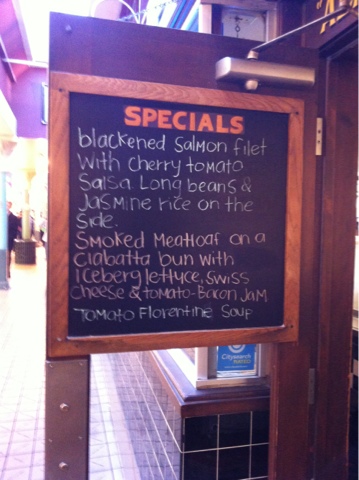 SPECIALS
blackened salmon filet
with cherry tomato
Salsa Long beans &
Jasmine rice on the
side.
Smoked Meatloaf on a
ciabatta bun with
iceberg lettuce, swiss
cheese & tomato-Bacon Jam
Tomato Florentine Soup
Citysearch